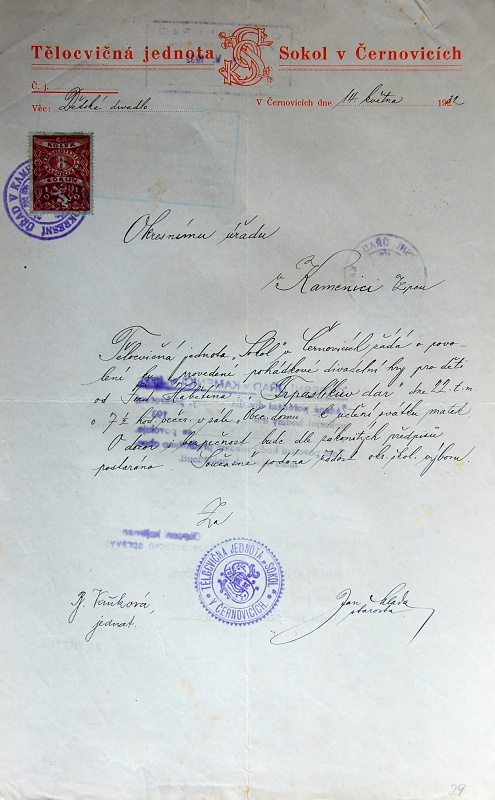 Tělocvičná jednota Sokol v Černovicích
Č. j.
Věc: Dětské divadlo
V Černovicích dne 14. května 1932
KOLEK
8
KORUN
OKRESNÍ ÚŘAD V KAME
Okresnímu úřadu
v Kamenici n/Lip.
Tělocvičná jednota „Sokol" v Černovicích žádá o povo-
lení ku provedení pohádkové divadelní hry pro děti
od Fr. „Trpaslíkův dar" dne 22. t. m.
o 7½ hod. večer. v sále „Obec. domu" k uctění svátku matek
O dozor a bezpečnost bude dle zákonitých předpisů
postaráno. Současně podána žádost okr. škol. výboru.
Za
TĚLOCVIČNÁ JEDNOTA „SOKOL"
V ČERNOVICÍCH
Vaňková,
jednat.
Jan
starosta
39